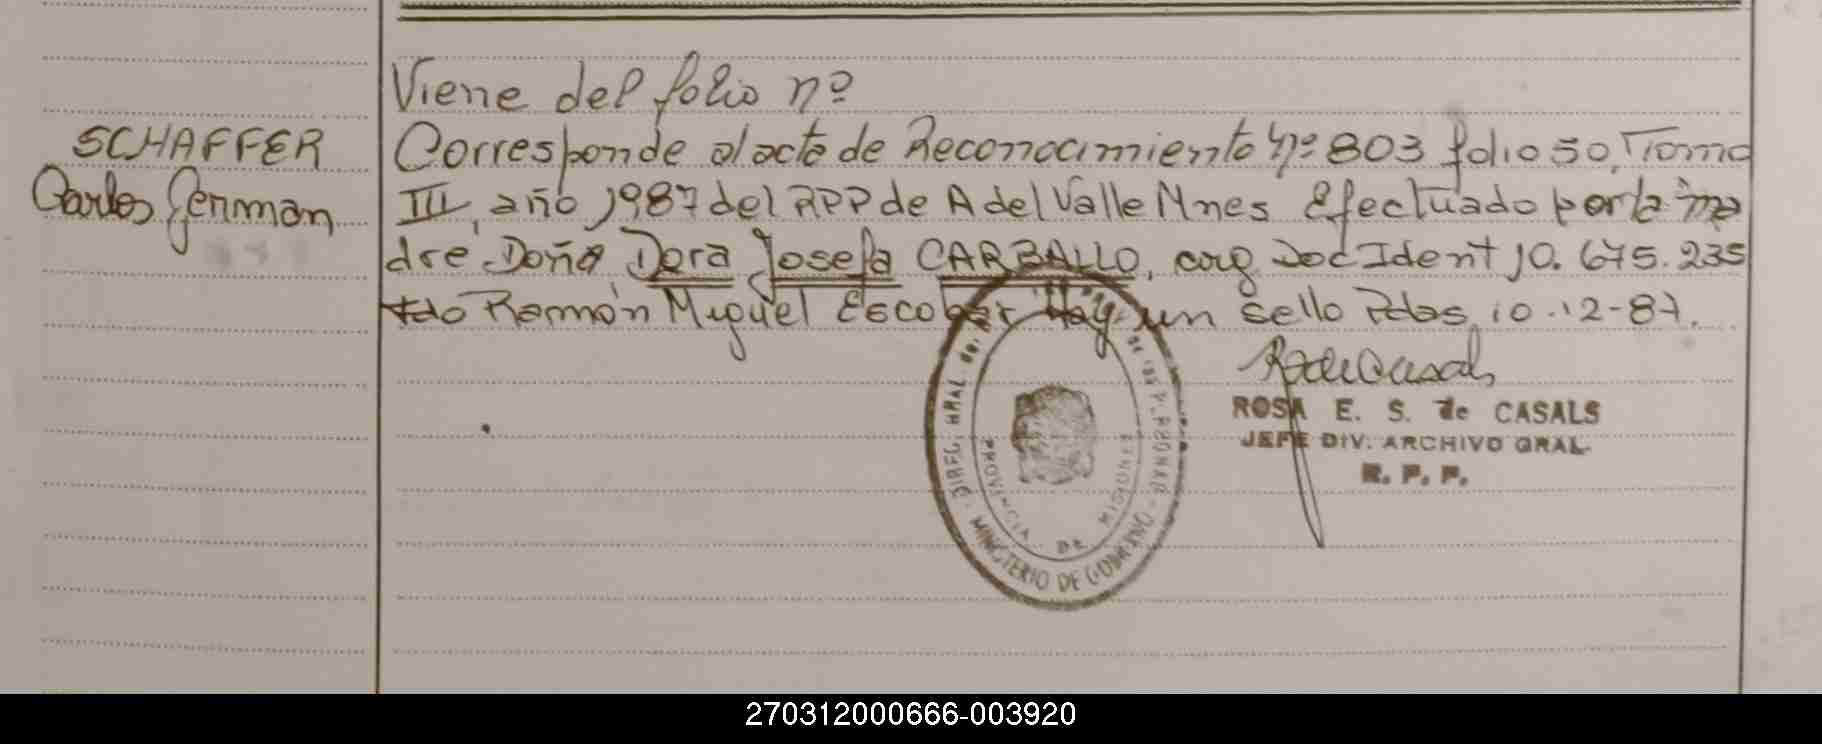 Viene del folio nº
SCHAFFER
Carlos German
Corresponde al acta de Reconocimiento Nº 803 folio 50, Tomo
III, año 1987 del RPP de A del Valle Mnes Efectuado por la ma
dre, Doña Dora Josefa CARBALLO, arg Doc Ident 10.675.235
fdo Ramón Miguel Escobar Hay un sello Pdas 10-12-87.
ROSA E. S. de CASALS
JEFE DIV. ARCHIVO GRAL.
R. P. P.
DIREC. GRAL. del REG. de las PERSONAS - MINISTERIO DE GOBIERNO
PROVINCIA DE MISIONES
270312000666-003920